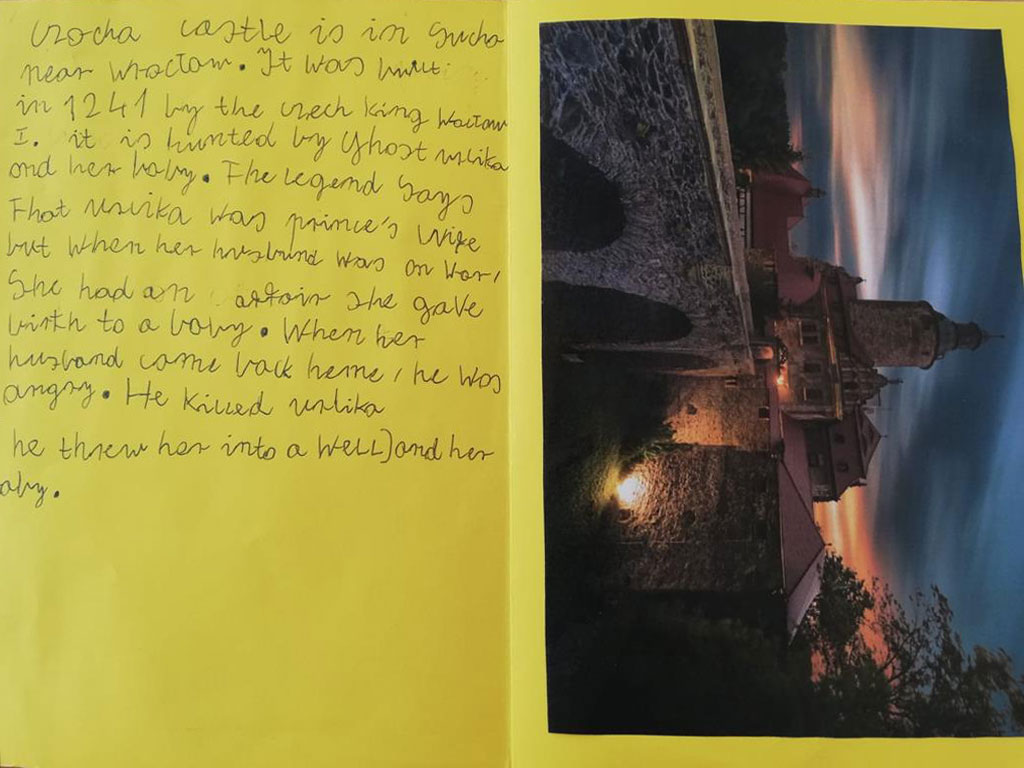 Czocha castle is in Sucha
near Wrocław. It was built
in 1241 by the czech king Wacław
I. it is hunted by Ghost Urlika
and her baby. The legend says
That Urlika was prince's Wife
but when her husband was on war,
She had an affair she gave
birth to a baby. When her
husband came back heme, he was
angry. He killed Urlika
he threw her into a WELL) and her
aby.